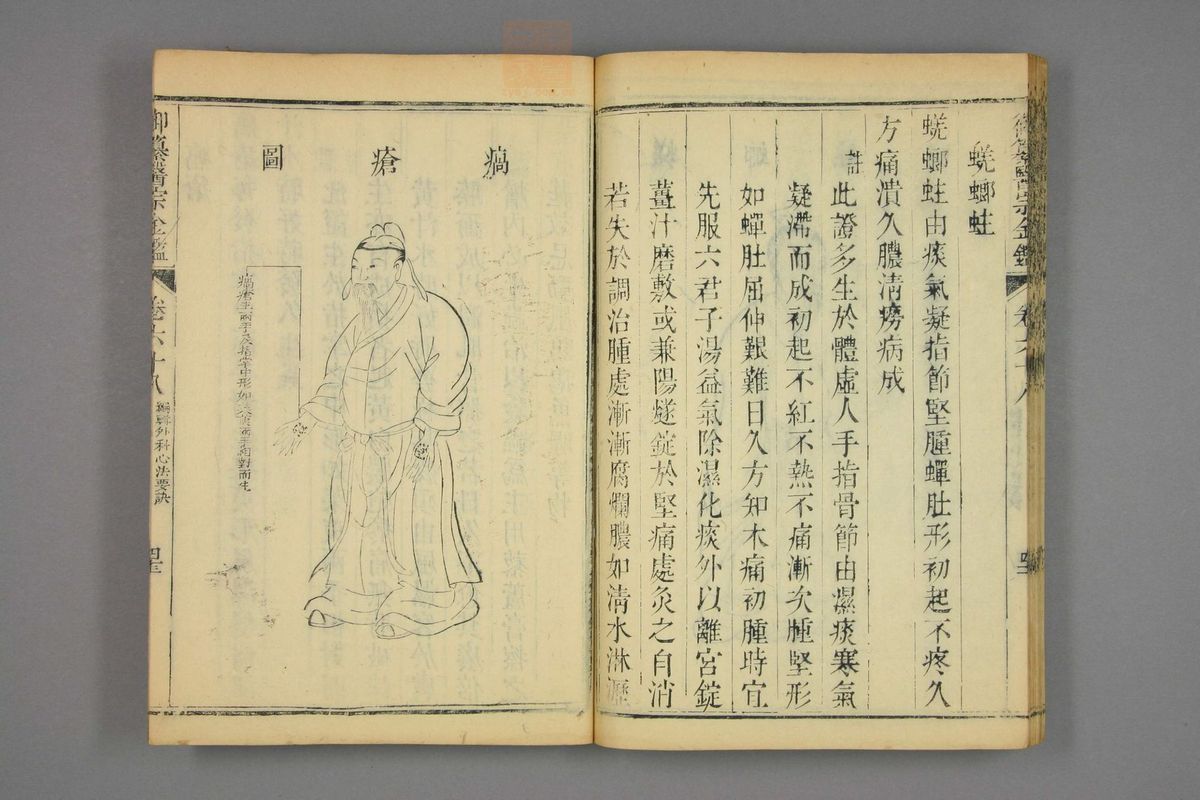 蜣螂蛀
蜣螂蛀由痰氣凝指節堅腫蟬肚形初起不疼久
方痛潰久膿清癆病成
註此證多生於體虛人手指骨節由濕痰寒氣
凝滯而成初起不紅不熱不痛漸次腫堅形
如蟬肚屈伸艱難日久方知木痛初腫時宜
先服六君子湯益氣除濕化痰外以離宮錠
薑汁磨敷或兼陽燧錠於堅痛處灸之自消
若失於調治腫處漸漸腐爛膿如清水淋瀝
瘑瘡圖
瘑瘡生兩手及指掌中形如茱萸兩手相對而生
御纂醫宗金鑑
卷六十八
編輯外科心法要訣